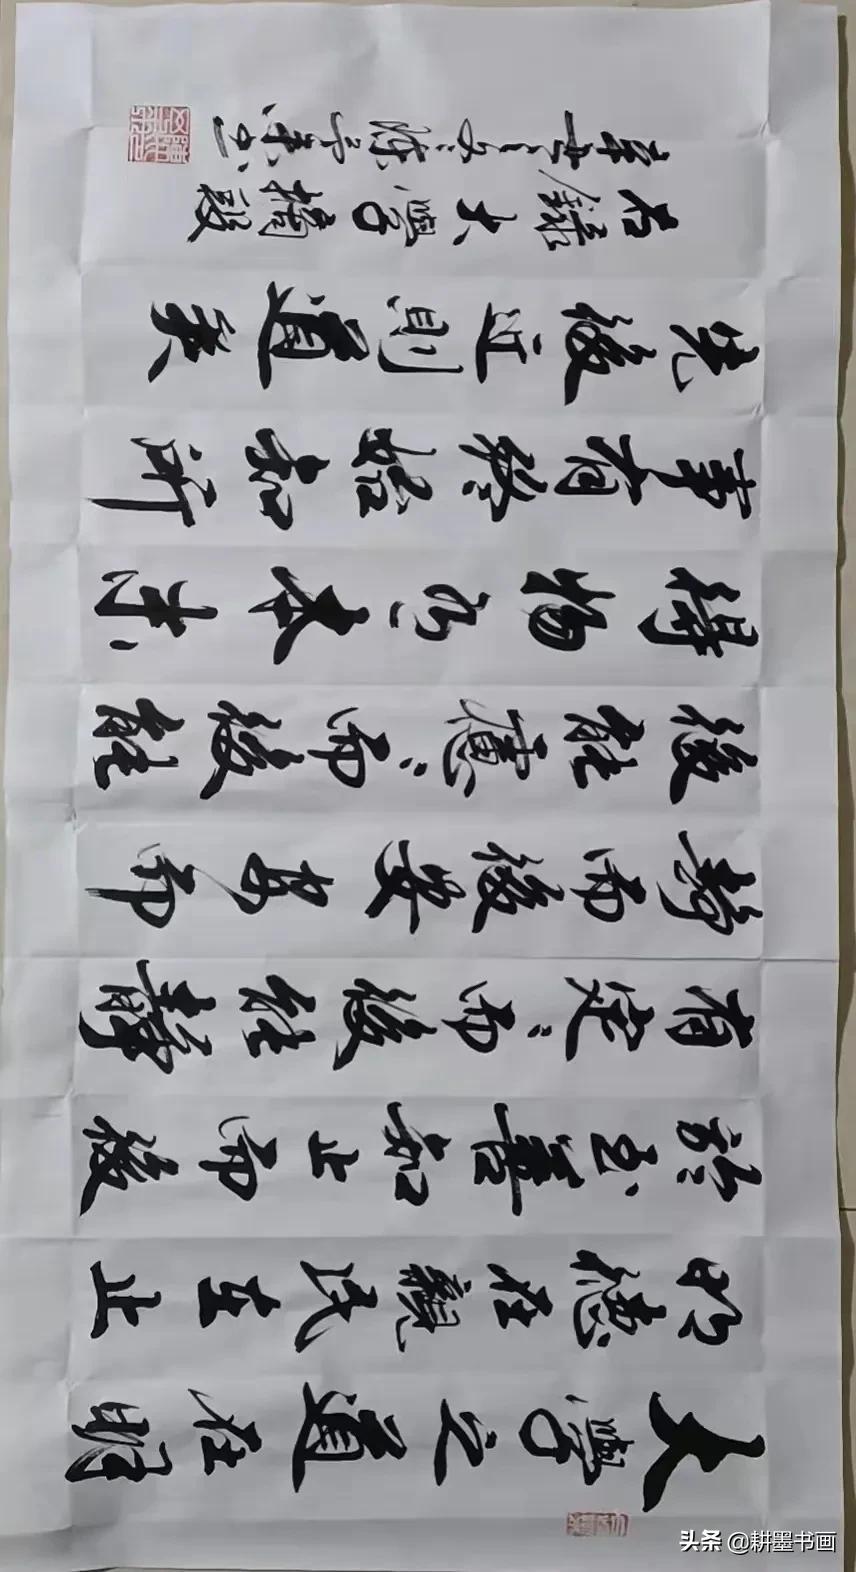 大學之道在明
明德在親民在止
於至善知止而後
有定〻而後能靜
靜而後安安而
後能慮〻而後能
得物有本末
事有終始知所
先後近則道矣
右錄大學摘段
头条 @耕墨书画